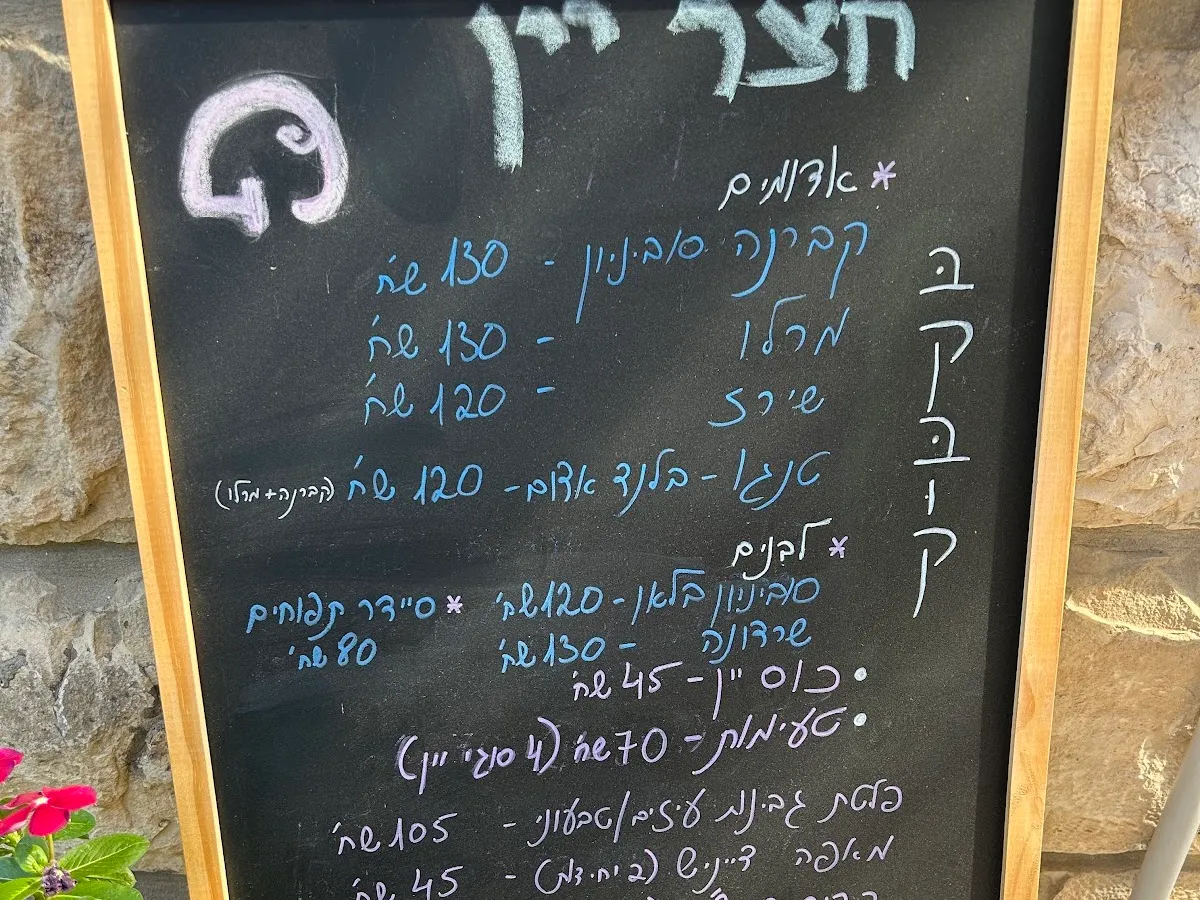 חצר יין
* אדומים
קברנה סוביניון - 130 ש״ח
מרלו - 130 ש״ח
שירז - 120 ש״ח
טנגו - בלנד אדום - 120 ש״ח (קברנה+מרלו)
בקבוק
* לבנים
סוביניון בלאן - 120 ש״ח
שרדונה - 130 ש״ח
* סיידר תפוחים
80 ש״ח
• כוס יין - 45 ש״ח
• טעימות - 70 ש״ח (4 סוגי יין)
פלטת גבינות עיזים/טבעוני - 105 ש״ח
מאפה דייניש (2 יחידות) - 45 ש״ח